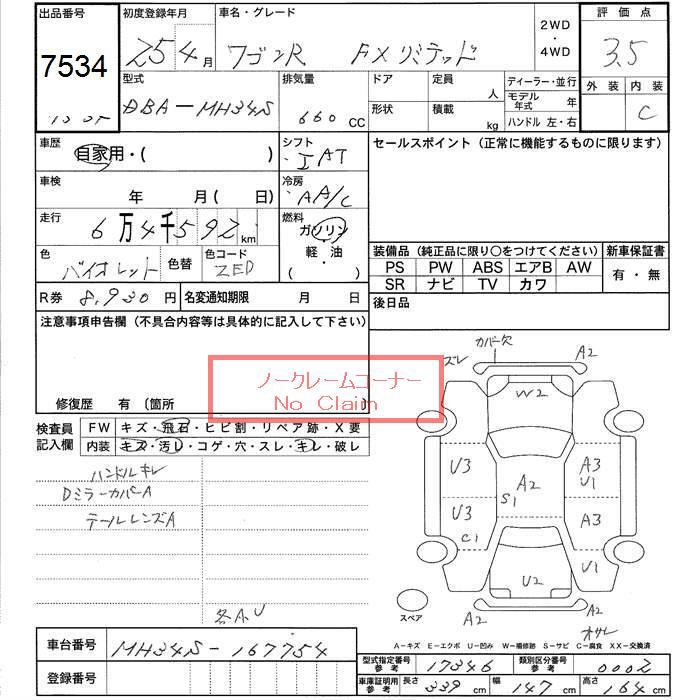 出品番号 初度登録年月 車名・グレード 2WD ・ 4WD 評価点
7534 25 4月 ワゴンR FXリミテッド 3.5
型式 排気量 ドア 定員 人 ディーラー・並行 外装 内装
DBA-MH34S 660 CC 形状 積載 kg モデル年式 年 C
ハンドル 左・右
車歴 シフト セールスポイント (正常に機能するものに限ります)
自家用・( ) IAT
車検 冷房
年 月 ( 日) AA/C
走行 燃料
6万4千592km ガソリン
軽・油
( )
色 色替 色コード 装備品 (純正品に限り○をつけてください) 新車保証書
バイオレット ZED PS PW ABS エアB AW 有・無
SR ナビ TV カワ
R券 8,930円 名変通知期限 月 日 後日品
注意事項申告欄 (不具合内容等は具体的に記入して下さい)
ノークレームコーナー
No Claim
修復歴 有 (箇所 )
検査員記入欄 FW キズ・飛石・ヒビ割・リペア跡・X要
内装 キズ・汚レ・コゲ・穴・スレ・キレ・破レ
ハンドルキレ
DミラーカバーA
テールレンズA
各A.U
ズレ カバー欠 A2
W2
U3 A2 A3 U1
S1
U3 C1 A3
U2 U1
スペア A2 A2 オサレ
A-キズ E-エクボ U-凹み W-補修跡 S-サビ C-腐食 XX-交換済
車台番号 MH34S-167754
登録番号
型式指定番号 参考 17346 類別区分番号 参考 0002
車庫証明用 参考 長さ 339 cm 幅 147 cm 高さ 164 cm